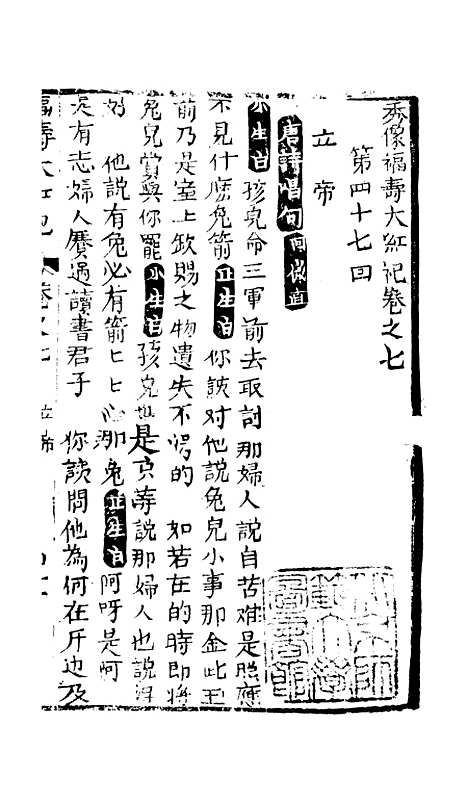 秀像福壽大紅袍卷之七
第四十七回
立帝
唐詩唱句
小生白 孩兒命三軍前去取討那婦人說自苦难是照應
不見什庅兔箭 正生白 你該对他說兔兒小事那金此玉
前乃是室上欽賜之物遺失不淂的 如若在的時即將
兔兒賞與你罷 小生白 孩兒也是 說那婦人也說
他說有兔必有箭匕匕 那兔 正生白 阿呀是阿
是有志婦人賡過讀書君子 你該問他為何在井边及
福壽大紅袍 卷之七 立帝